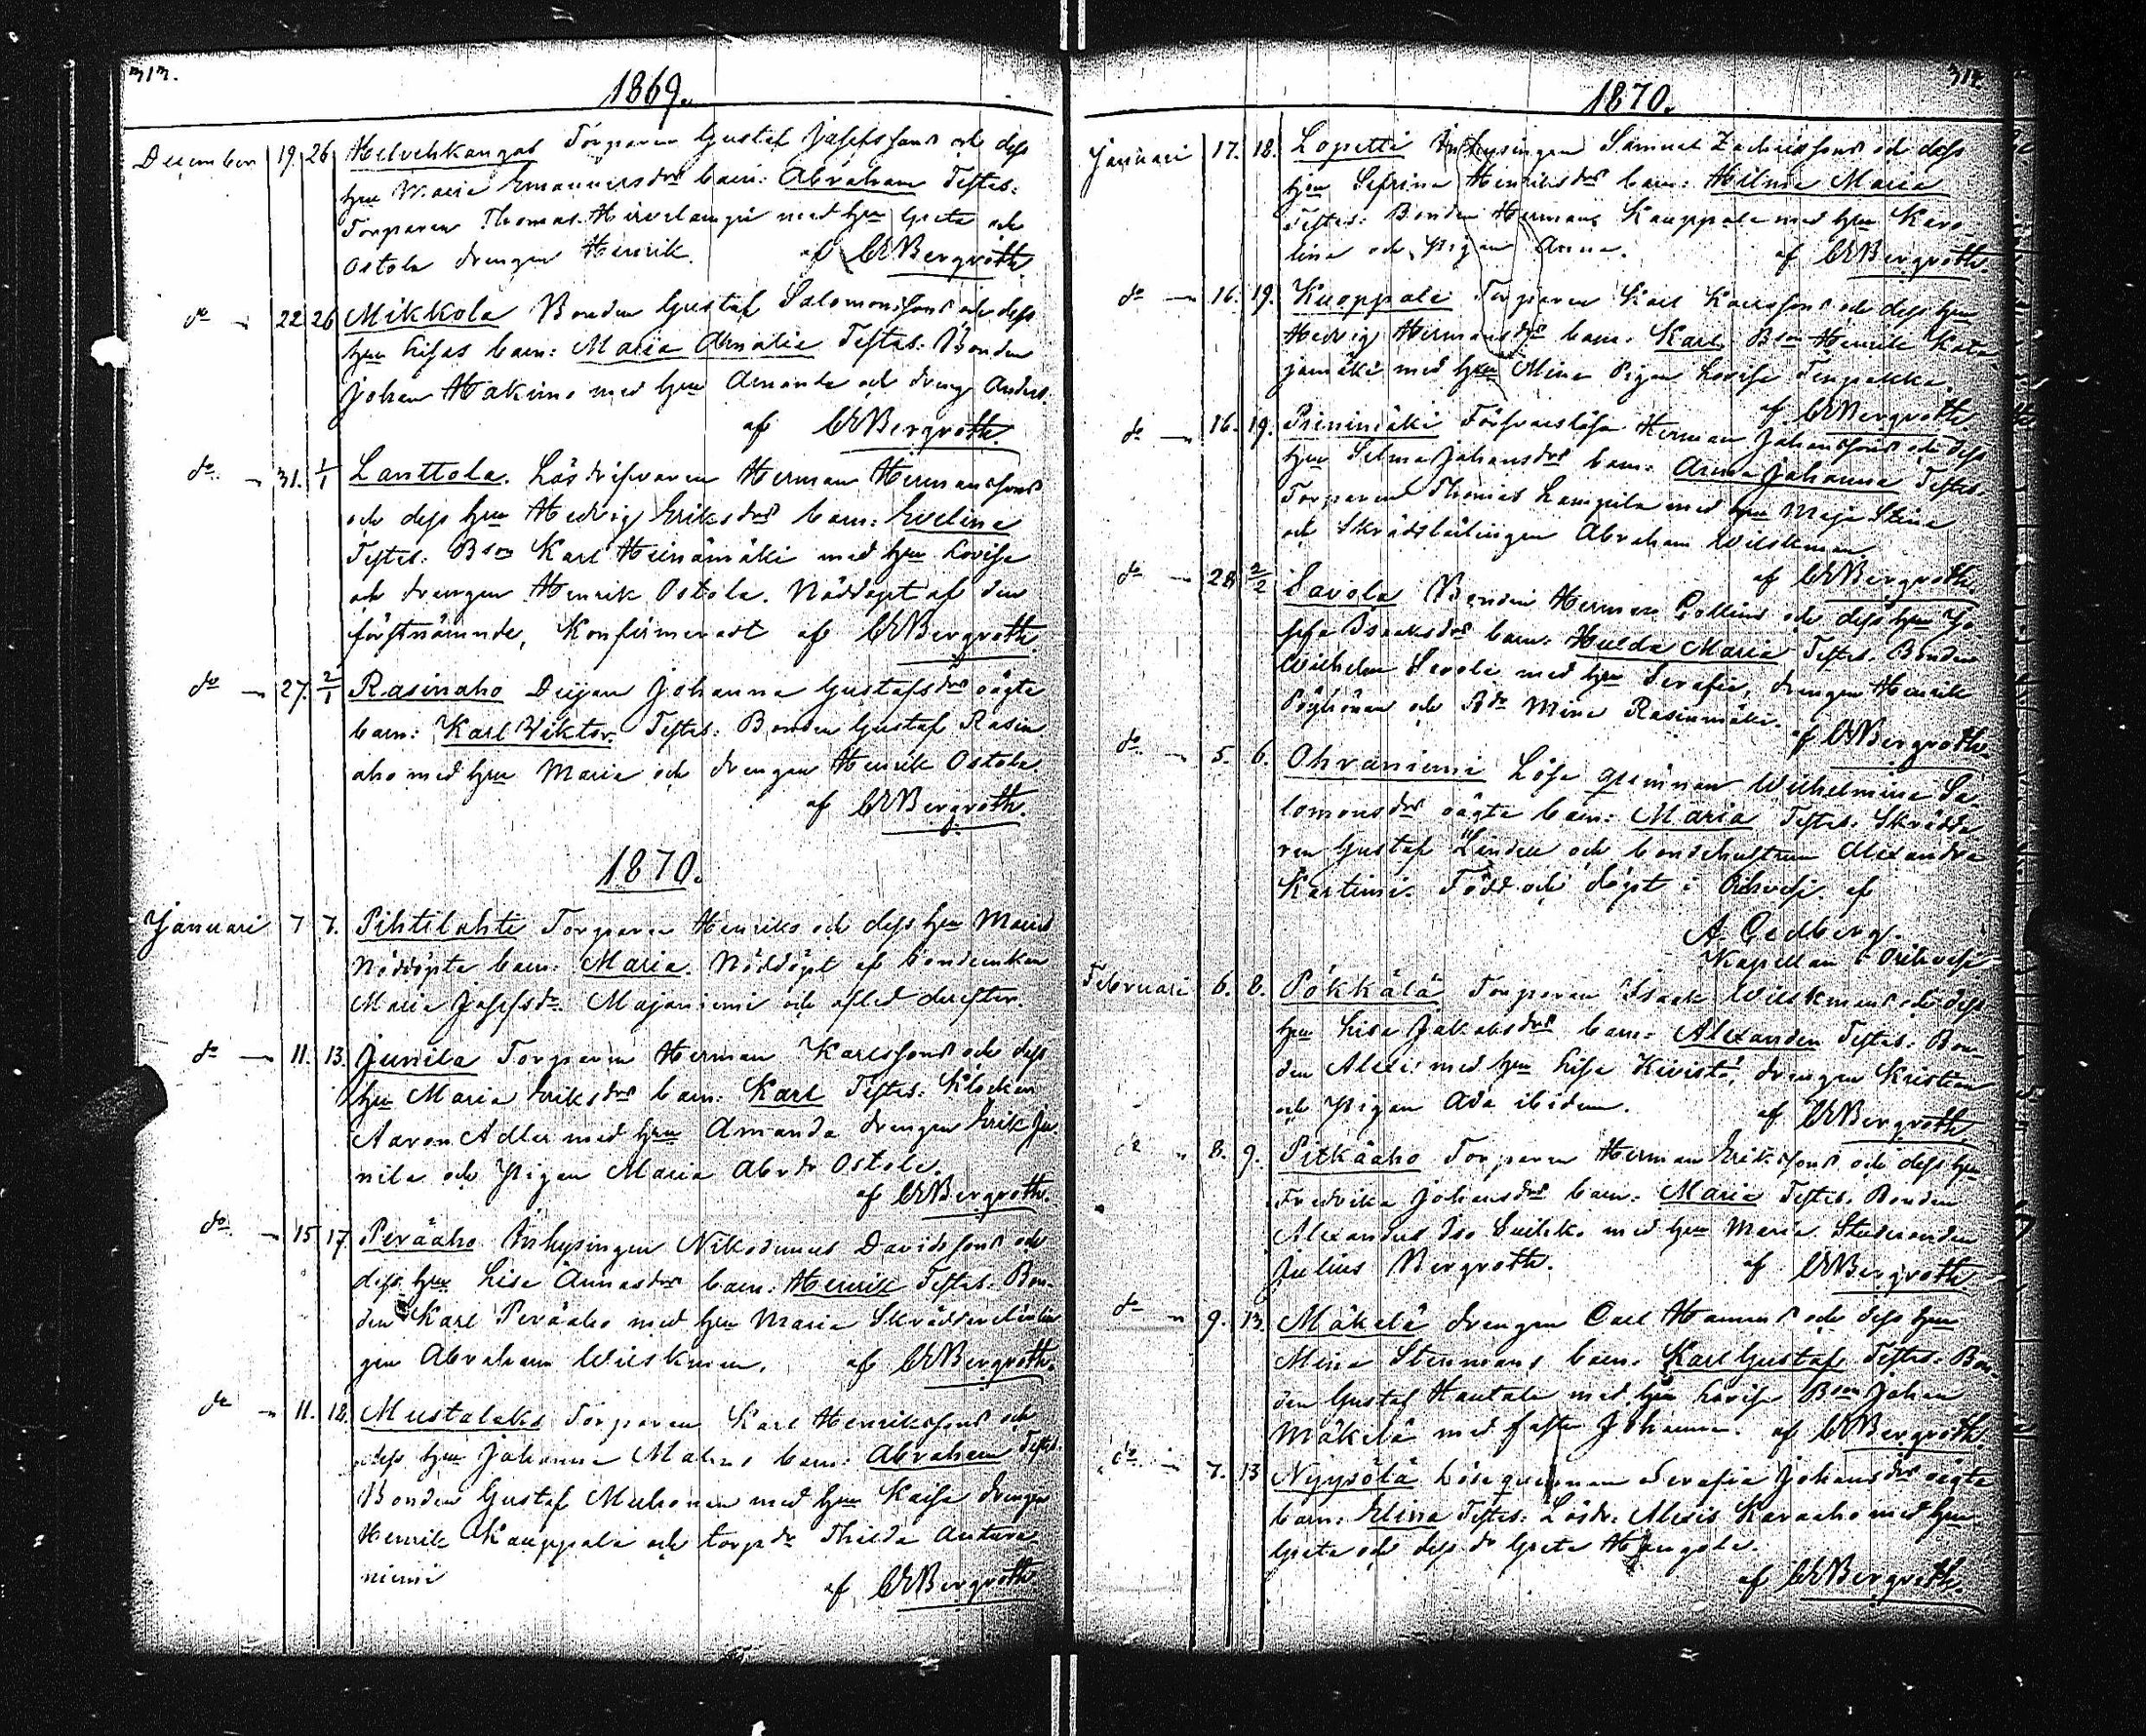 313.
1869.
December 19. 26 Helvehkangas Torparen Gustaf Josefssons och dess
hru Maria Emanuelsdrs barn: Abraham Testes:
Torparen Thomas Hirvelampi med hru Greta och
Ostola drengen Henrik. af CEBergroth.
do 22 26 Mikkola Bonden Gustaf Salomonssons och dess
hru Lisas barn: Maria Amalia Testes: Bonden
Johan Hakuni med hru Amanda och dreng Anders.
af CEBergroth.
do 31. 1/1 Lanttola. Lösdrifvaren Herman Hermanssons
och dess hru Hedvig Eriksdrs barn: Evelina
Testes: Bson Karl Heinämäki med hru Lovisa
och drengen Henrik Ostola. Nöddöpt af den
förstnämnde, Konfirmeradt af CEBergroth.
do 27. 2/1 Rasinaho Deijan Johanna Gustafsdrs oägta
barn: Karl Viktor. Testes: Bonden Gustaf Rasin
aho med hru Maria och drengen Henrik Ostola.
af CEBergroth.
1870.
Januari 7 7. Pihtilahti Torparen Henriks och dess hru Marias
Nöddöpta barn: Maria. Nöddöpt af bondenkan
Maria Josefsdr. Majaniemi och afled derefter.
do 11. 13. Junila Torparen Herman Karlssons och dess
hru Maria Eriksdrs barn: Karl Testes: Klockaren
Aaron Adler med hru Amanda drengen Erik Ju
nila och pigan Maria Abrdr Ostola.
af CEBergroth.
do 15 17 Perääho Inhysingen Nikodemus Davidssons och
dess hru Lisa Annasdrs barn: Henrik Testes: Bon
den Karl Perääho med hru Maria Skräddarelärlin
gen Abraham Wilskman. af CEBergroth.
do 11. 18. Mustalaks Torparen Karl Henrikssons och
dess hru Johanna Malins barn: Abraham Testes.
Bonden Gustaf Muhonen med hru Kaisa drengen
Henrik Kauppala och torpdr Thilda Autura
niemi af CEBergroth.
314.
1870.
Januari 17. 18. Lopetti Inhysingen Samuel Zachrissons och dess
hru Sefrina Henriksdrs barn: Hilma Maria
Testes: Bonden Herman Kauppala med hru Karo
lina och pigan Anna. af CEBergroth.
do 16. 19. Kuoppala Torparen Karl Karlssons och dess hru
Hedvig Hermansdrs barn. Karl. Bson Henrik Kata
jamäki med hru Mina Pigan Lovisa Tengakka.
af CEBergroth
do 16. 19. Prinimäki Försvarslöse Herman Johanssons och dess
hru Selma Johansdrs barn: Anna Johanna Testes.
Torparen Thomas Lampila med hru Maja Stina
och Skrädslärlingen Abraham Wilskman
af CEBergroth.
do 28 2/2 Savola Bonden Herman Gollins och dess hru Jo
sefa Isaaksdrs barn. Hulda Maria Testes. Bonden
Wilhelm Savola med hru Serafia, drengen Henrik
Pöyhönen och Bdr Mina Rasinmäki.
af CEBergroth.
do 5. 6. Ohraniemi Lösa qvinnan Wilhelmina Sa
lomonsdrs oägta barn: Maria Testes: Skrädda
ren Gustaf Lindell och bondehustrun Alexandra
Kartimi. Född och döpt i Orihvesi af
A. Cedberg.
Kapellan i Orihvesi
Februari 6. 8. Pökkälä Torparen Isaak Wilskmans och dess
hru Lisa Jakobsdrs barn: Alexander Testes. Bon
den Alexi med hru Lisa Kivistö, drengen Kristian
och Pigan Ada ibidem. af CEBergroth
do 8. 9. Pitkäaho Torparen Herman Erikssons och dess hru
Fredrika Johansdrs barn: Maria Testes. Bonden
Alexander Iso Suikko med hru Maria Studeranden
Julius Bergroth. af CEBergroth
do 9. 13. Mäkelä drengen Carl Hamns och dess hru
Mina Stenmans barn. Karl Gustaf Testes: Bon
den Gustaf Hautala med hru Lovisa Bson Johan
Mäkelä med fästm Johanna. af CEBergroth.
do 7. 13 Nyysölä Lösa qvinnan Serafia Johansdrs oägta
barn: Elina Testes: Lösdr. Alexis Karaaho med hru
Greta och dess dr Greta Hangola.
af CEBergroth.